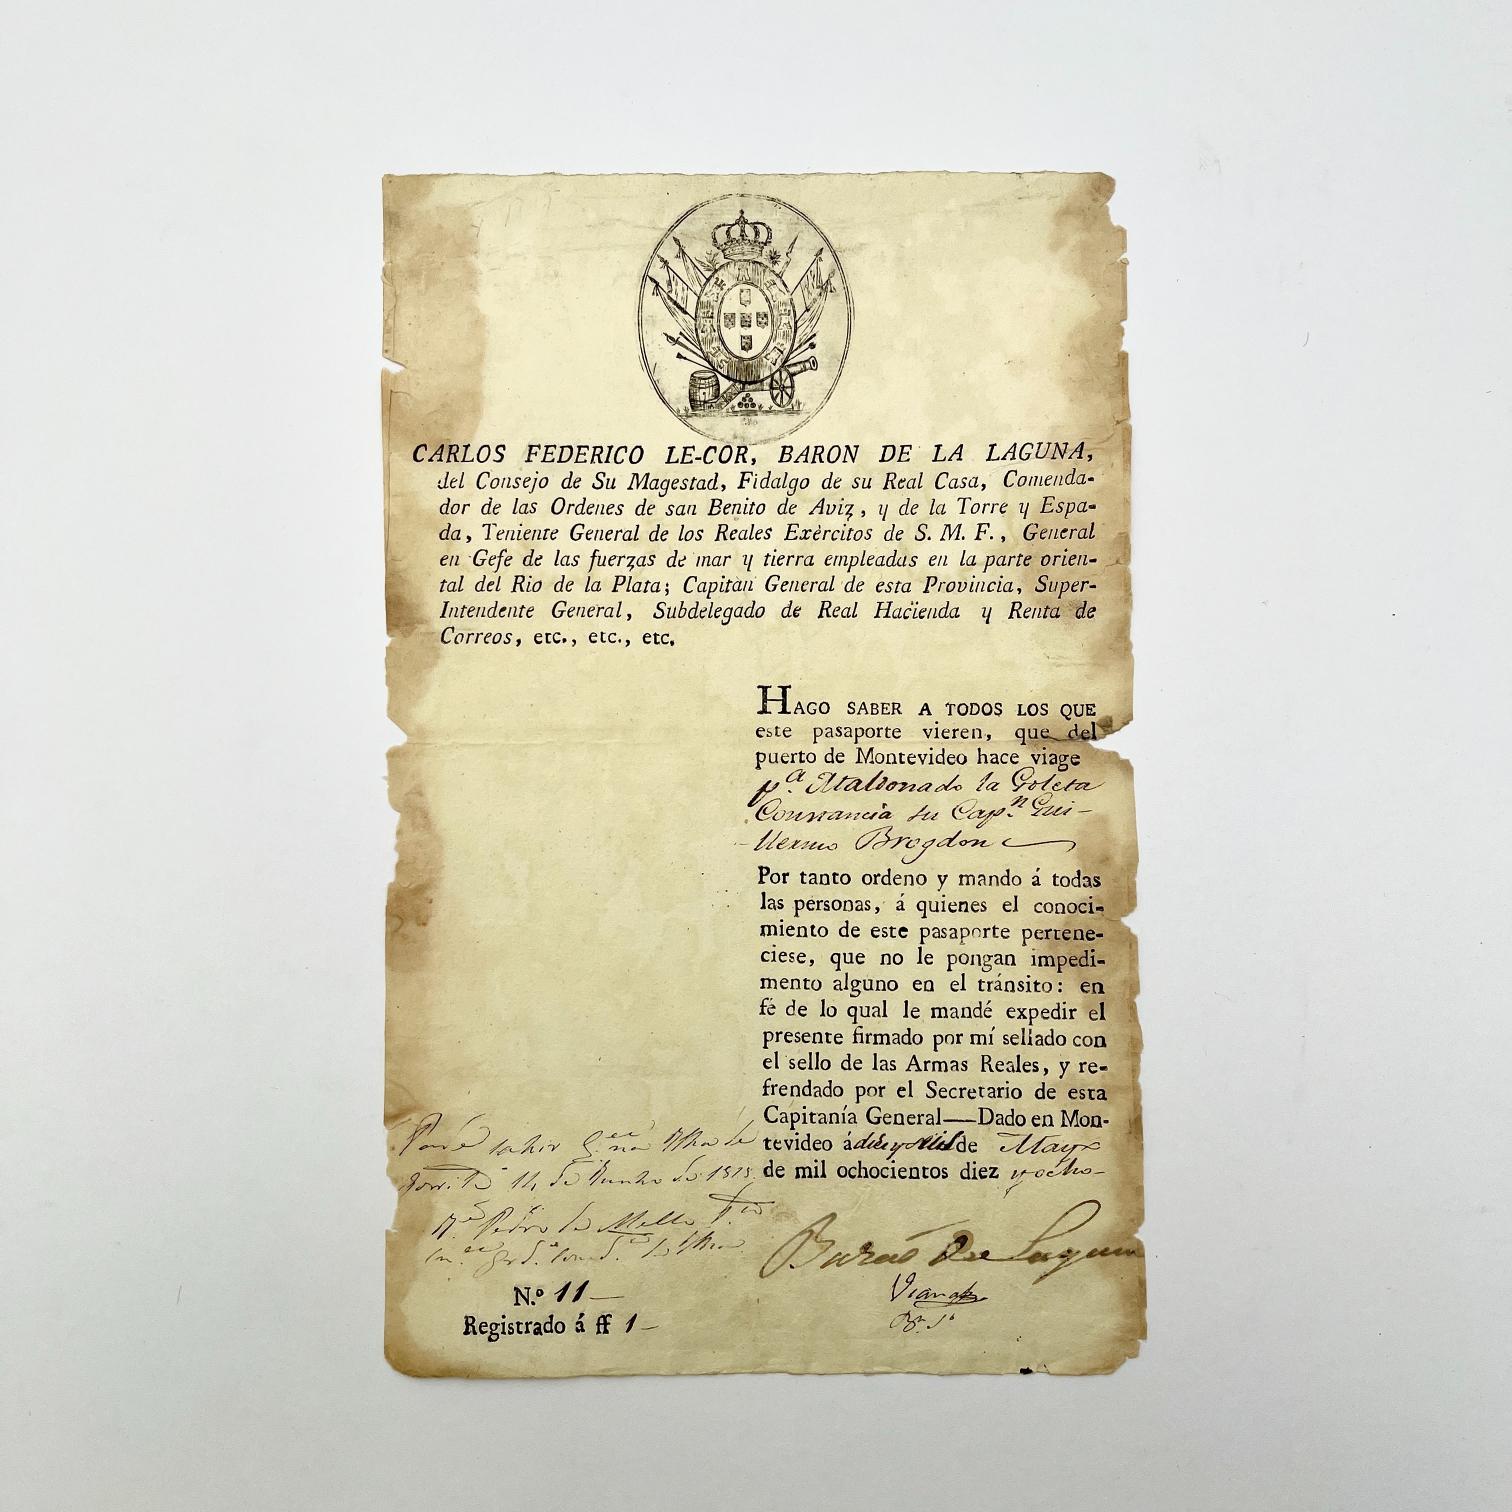 CARLOS FEDERICO LE-COR, BARON DE LA LAGUNA,
del Consejo de Su Magestad, Fidalgo de su Real Casa, Comenda-
dor de las Ordenes de san Benito de Aviz, y de la Torre y Espa-
da, Teniente General de los Reales Exèrcitos de S. M. F., General
en Gefe de las fuerzas de mar y tierra empleadas en la parte orien-
tal del Rio de la Plata; Capitàn General de esta Provincia, Super-
Intendente General, Subdelegado de Real Hacïenda y Renta de
Correos, etc., etc., etc.
HAGO SABER A TODOS LOS QUE
este pasaporte vieren, que del
puerto de Montevideo hace viage
p.ª Maldonado la Goleta
Constancia su Cap.n Gui-
llermo Brogdon
Por tanto ordeno y mando á todas
las personas, á quienes el conoci-
miento de este pasaporte pertene-
ciese, que no le pongan impedi-
mento alguno en el tránsito: en
fé de lo qual le mandé expedir el
presente firmado por mí sellado con
el sello de las Armas Reales, y re-
frendado por el Secretario de esta
Capitanía General—Dado en Mon-
tevideo á de Mayo
de mil ochocientos diez y ocho-
14 de Junho de 1818
Pedro de Mello
Baraõ de Laguna
Viana
N.º 11
Registrado á ff 1